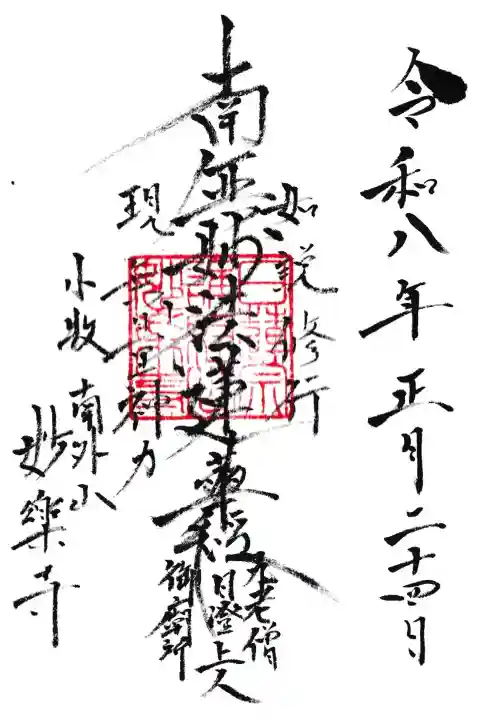 令和八年正月二十四日
如説修行
南無妙法蓮華経
老僧
日澄上人
御廟所
現無量神力
小牧
南外山
妙樂寺